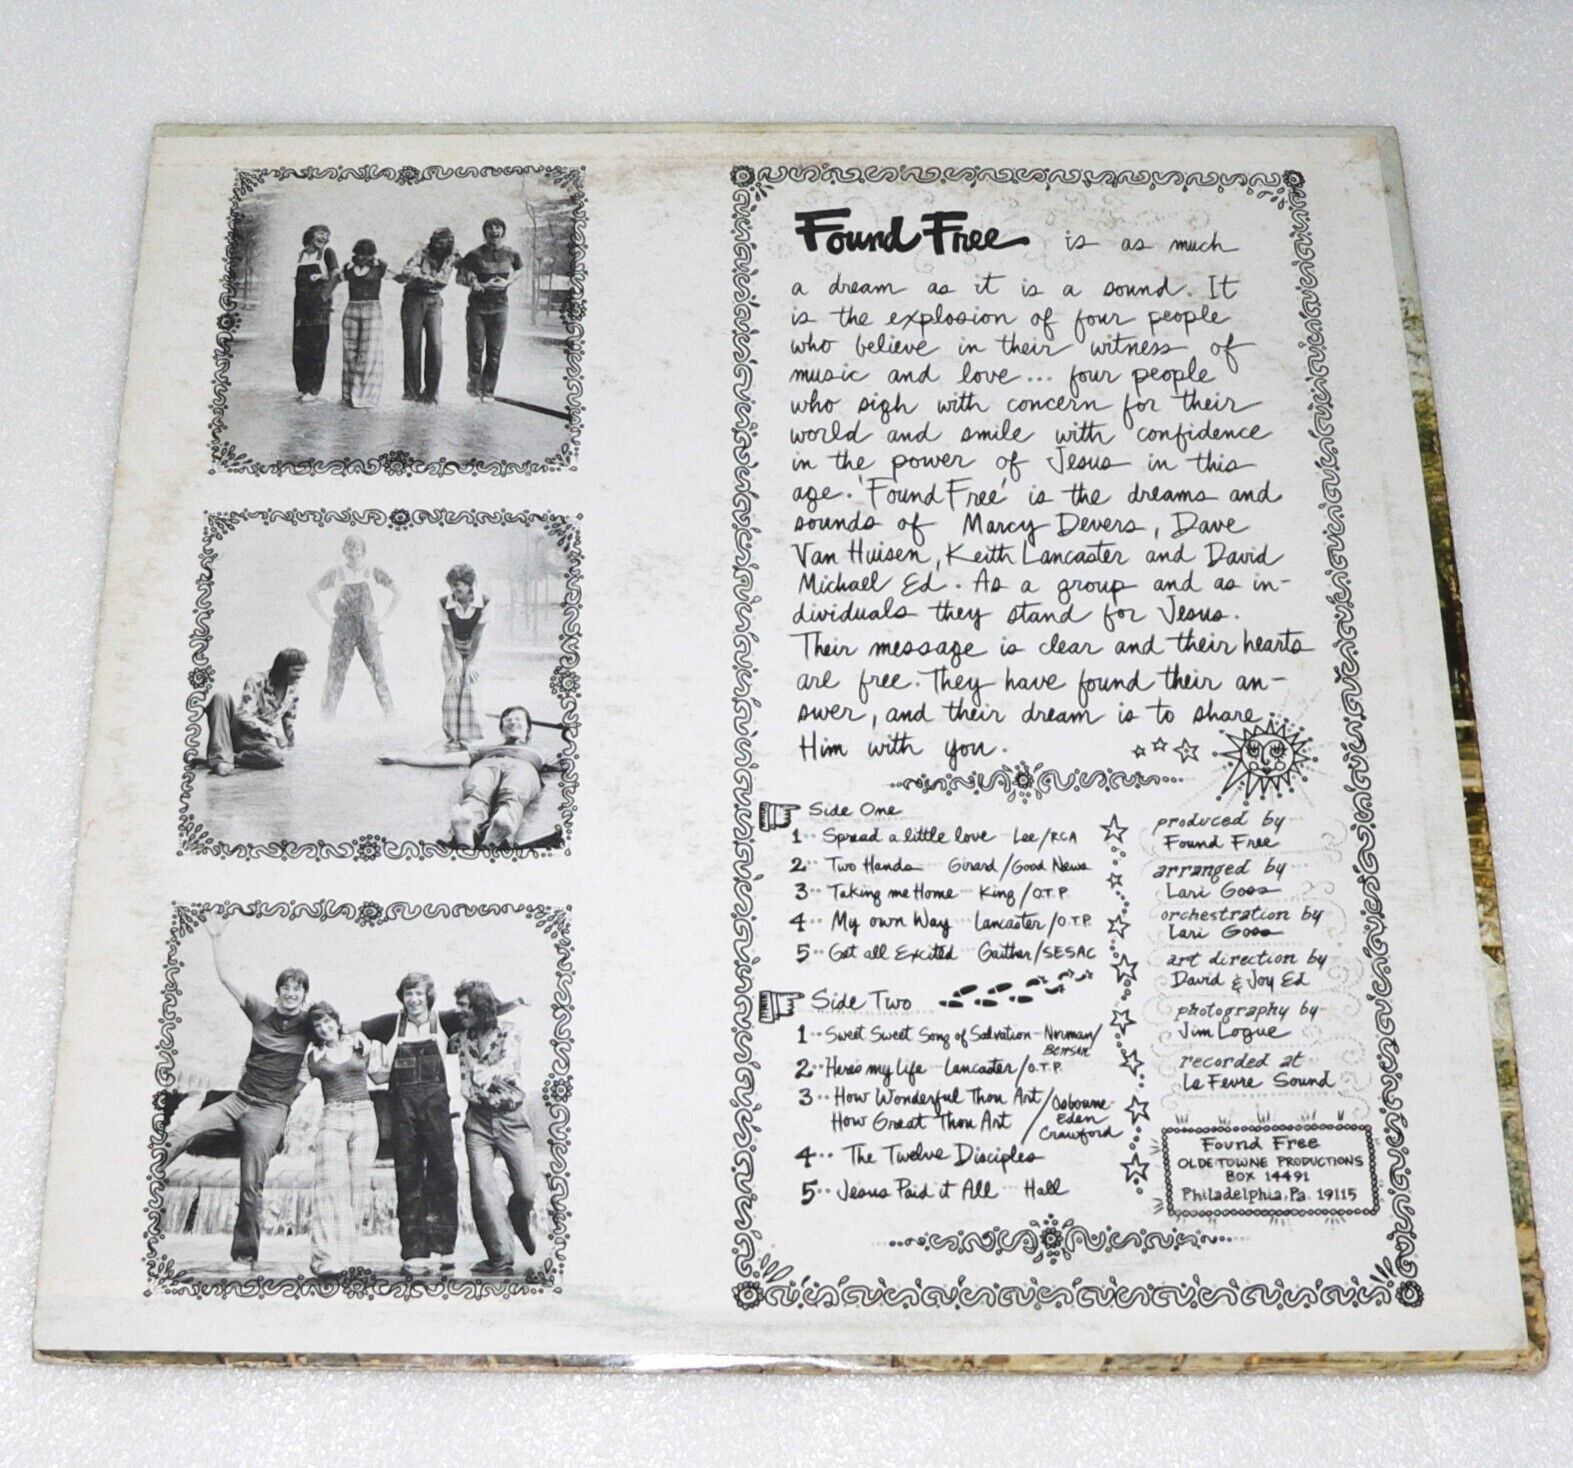 Found Free is as much
a dream as it is a sound. It
is the explosion of four people
who believe in their witness of
music and love... four people
who sigh with concern for their
world and smile with confidence
in the power of Jesus in this
age. 'Found Free' is the dreams and
sounds of Marcy Devers, Dave
Van Huisen, Keith Lancaster and David
Michael Ed. As a group and as in-
dividuals they stand for Jesus.
Their message is clear and their hearts
are free. They have found their an-
swer, and their dream is to share
Him with you.
Side One
1.. Spread a little love Lee/RCA
2.. Two Hands Girard/Good News
3.. Taking me Home King/O.T.P.
4.. My own Way Lancaster/O.T.P.
5.. Get all Excited Gaither/SESAC
Side Two
1.. Sweet Sweet Song of Salvation - Norman/
Benson
2.. Here's my life Lancaster/O.T.P.
3.. How Wonderful Thou Art/Osbourne
Eden
How Great Thou Art/Crawford
4.. The Twelve Disciples
5.. Jesus Paid it All Hall
produced by
Found Free
arranged by
Lari Goss
orchestration by
Lari Goss
art direction by
David & Joy Ed
photography by
Jim Logue
recorded at
Le Fevre Sound
Found Free
OLDE TOWNE PRODUCTIONS
BOX 14491
Philadelphia, Pa. 19115